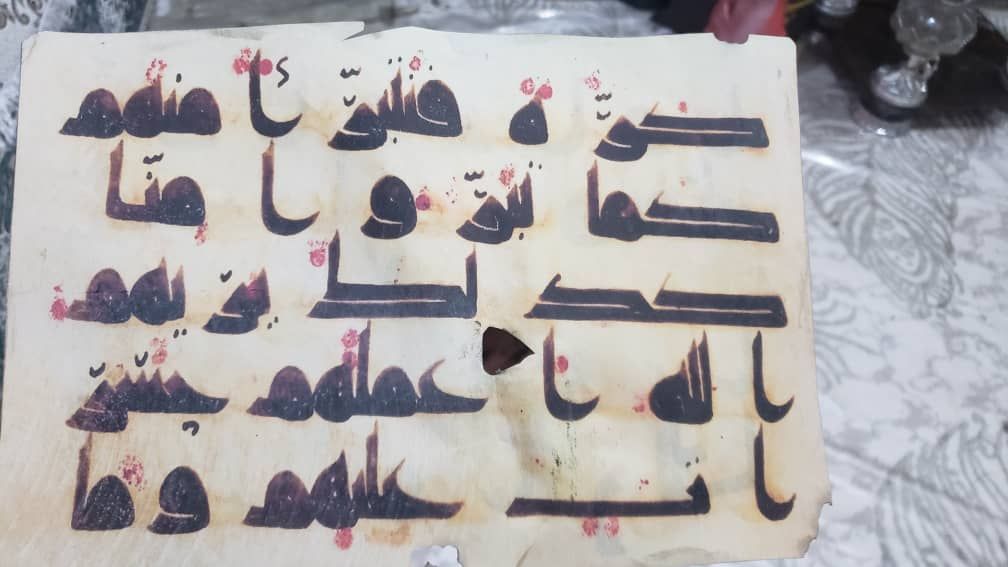 كرة فنتبرأ منهم
كما تبروا منا
كذلك يريهم
الله اعملهم حسر
ات عليهم وما